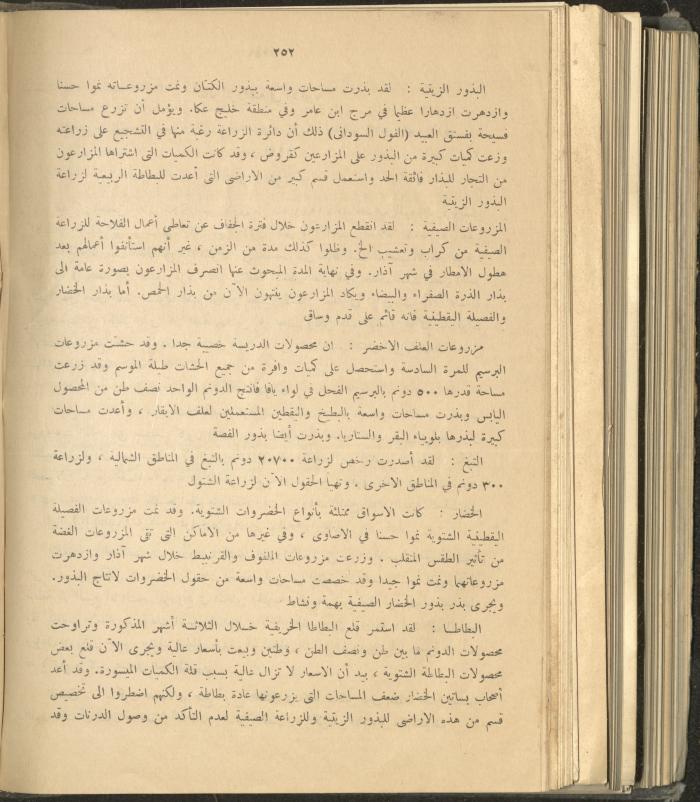 ٢٥٢
البذور الزيتية : لقد بذرت مساحات واسعة ببذور الكتان ونمت مزروعــاته نموا حسنا
وازدهرت ازدهارا عظيما في مرج ابن عامر وفي منطقة خليج عكا. ويؤمل أن تزرع مساحات
فسيحة بفستق العبيد (الفول السوداني) ذلك أن دائرة الزراعة رغبة منها في التشجيع على زراعته
وزعت كميات كبيرة من البذور على المزارعين كقروض ، وقد كانت الكميات التي اشتراها المزارعون
من التجار للبذار فائقة الحد واستعمل قسم كبير من الاراضي التي أعدت للبطاطة الربيعية لزراعة
البذور الزيتية
المزروعات الصيفية : لقد انقطع المزارعون خلال فترة الجفاف عن تعاطي أعمال الفلاحة للزراعة
الصيفية من كراب وتعشيب الخ. وظلوا كذلك مدة من الزمن ، غير أنهم استأنفوا أعمالهم بعد
هطول الامطار في شهر آذار. وفي نهاية المدة المبحوث عنها انصرف المزارعون بصورة عامة الى
بذار الذرة الصفراء والبيضاء ويكاد المزارعون ينتهون الآن من بذار الحمص. أما بذار الخضار
والفصيلة اليقطينية فانه قائم على قدم وساق
مزروعات العلف الاخضر : ان محصولات الدريسة خصيبة جدا . وقد حشت مزروعات
البرسيم للمرة السادسة واستحصل على كميات وافرة من جميع الحشات طيلة الموسم وقد زرعت
مساحة قدرها ٥٠٠ دونم بالبرسيم الفحل في لواء يافا فانتج الدونم الواحد نصف طن من المحصول
اليابس وبذرت مساحات واسعة بالبطيخ واليقطين المستعملين لعلف الابقار ، وأعدت مساحات
كبيرة لبذرها بلوبياء البقر والستاريا. وبذرت أيضا بذور الفصة
التبغ : لقد أصدرت رخص لزراعة ٢٠٧٠٠ دونم بالتبغ في المناطق الشمالية ، ولزراعة
٣٠٠ دونم في المناطق الاخرى . وتهيأ الحقول الآن لزراعة الشتول
الخضار : كانت الاسواق ممتلئة بأنواع الخضروات الشتوية. وقد نمت مزروعات الفصيلة
اليقطينية الشتوية نموا حسنا في الاصاوى ، وفي غيرها من الاماكن التي تقي المزروعات الغضة
من تأثير الطقس المتقلب . وزرعت مزروعات الملفوف والقرنبيط خلال شهر آذار وازدهرت
مزروعاتهما ونمت نموا جيدا وقد خصصت مساحات واسعة من حقول الخضروات لانتاج البذور.
ويجرى بذر بذور الخضار الصيفية بهمة ونشاط
البطاطــا : لقد استمر قلع البطاطا الخريفية خــلال الثلاثــة أشهر المذكورة وتراوحت
محصولات الدونم ما بين طن ونصف الطن ، وطنين وبيعت بأسعار عالية ويجرى الآن قلع بعض
محصولات البطاطة الشتوية ، بيد أن الاسعار لا تزال عالية بسبب قلة الكميات الميسورة. وقد أعد
أصحاب بساتين الخضار ضعف المساحات التي يزرعونها عادة بطاطة ، ولكنهم اضطروا الى تخصيص
قسم من هذه الاراضي للبذور الزيتية وللزراعة الصيفية لعدم التأكد من وصول الدرنات وقد